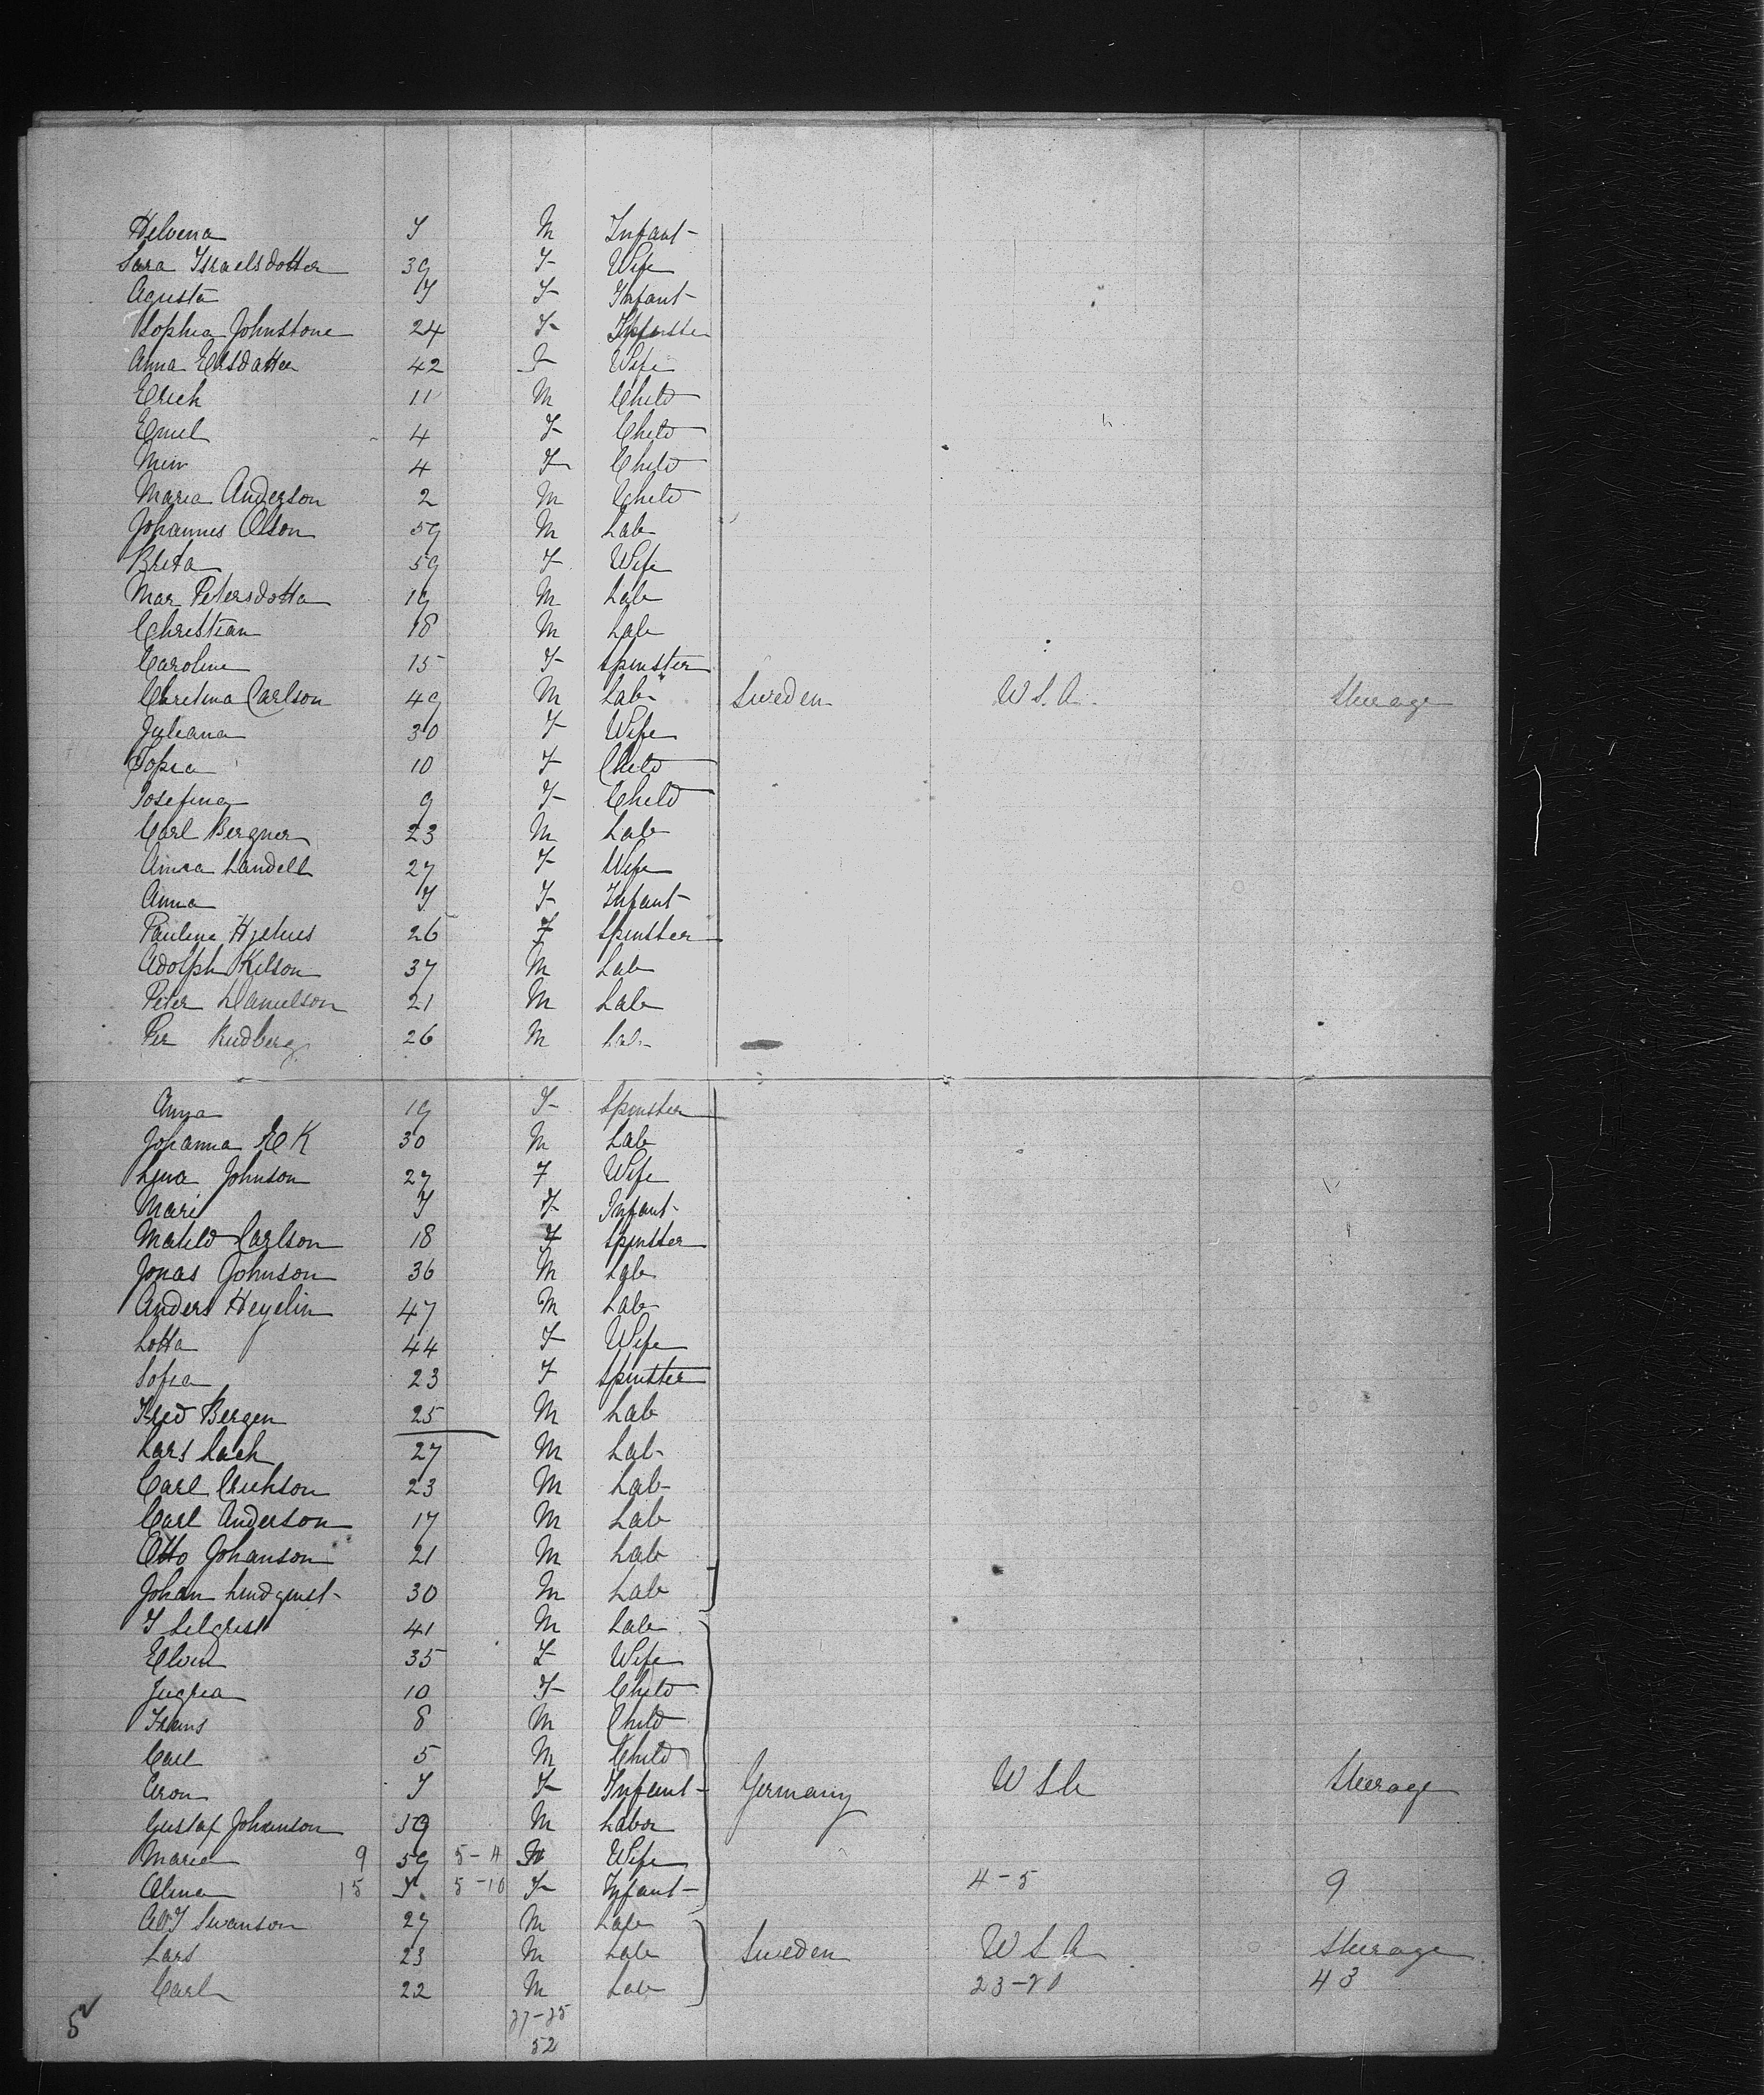 Helvena I M Infant
Sara Israelsdotter 39 F Wife
Agusta I F Infant
Sophia Johnstone 24 F Spinster
Anna Ersdotter 42 F Wife
Erich 11 M Child
Emel 4 F Child
4 F Child
Maria Anderson 2 M Child
Johannes Olson 59 M Lab
Brita 59 F Wife
Mar Petersdotta 19 M Lab
Christian 18 M Lab
Caroline 15 F Spinster
Christina Carlson 49 M Lab Sweden U.S.A. Steerage
Juliana 30 F Wife
Sofia 10 F Child
Josefina 9 F Child
Carl Bergner 23 M Lab
Landell 27 F Wife
Anna I F Infant
Paulina 26 F Spinster
Adolph Kilson 37 M Lab
Peter Danielson 21 M Lab
Per Rudberg 26 M Lab
Anna 19 F Spinster
Johanna E K 30 M Lab
Lina Johnson 27 F Wife
Mari I F Infant
Matild Carlson 18 F Spinster
Jonas Johnson 36 M Lab
Anders Heyelin 47 M Lab
Lotta 44 F Wife
Sofia 23 F Spinster
Fred Bergen 25 M Lab
Lars Lach 27 M Lab
Carl Erickson 23 M Lab
Carl Anderson 17 M Lab
Otto Johanson 21 M Lab
Johan Lindquist 30 M Lab
41 M Lab
Elvin 35 F Wife
10 F Child
Frans 8 M Child
Carl 5 M Child
Aron I F Infant Germany U S A Steerage
Gustaf Johanson 59 M Labor
Maria 9 59 5-4 Wife
Alma 15 I 5-10 F Infant 4-5 9
Swanson 27 M Lab
Lars 23 M Lab Sweden U S A Steerage
Carl 22 M Lab 23-20 43
27-25
52
5